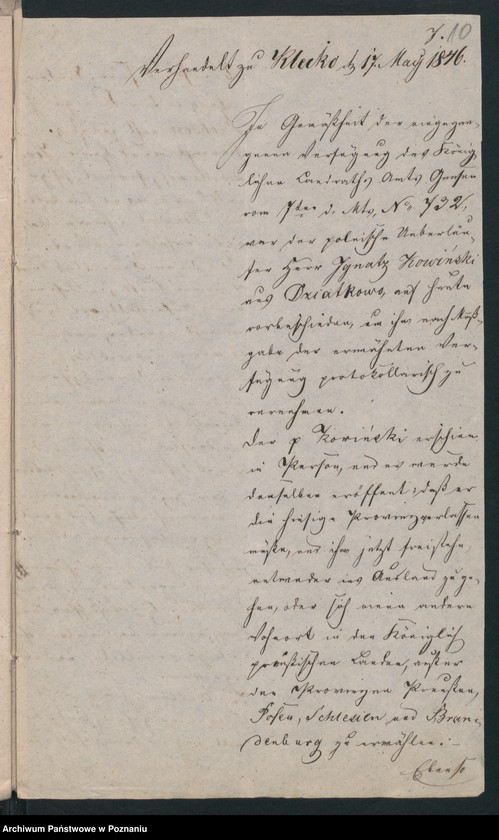 7. 10
Verhandelt zu Klecko d. 17. May 1846.
In Gemäßheit der eingegan-
genen Verfügung des König-
lichen Landraths Amts Gnesen
vom 7ten d. Mts. No. 732,
war der polnische Ueberläu-
fer Herr Ignatz Kowiński
aus Dziatkowo, auf heute
vorbeschieden, um ihn nach Maß-
gabe der erwähnten Ver-
fügung protokollarisch zu
vernehmen.
Der p Kowiński erschien
in Person, und es wurde
demselben eröffent: daß er
die hiesige Provinz verlassen
müße, und ihm jetzt freistehe,
entweder ins Ausland zu ge-
hen, oder sich einen andern
Wohnort in den Königlich
preußischen Landen, außer
den Provinzen Preußen,
Posen, Schlesien und Bran-
denburg zu erwählen.-
Ebenso
Archiwum Państwowe w Poznaniu